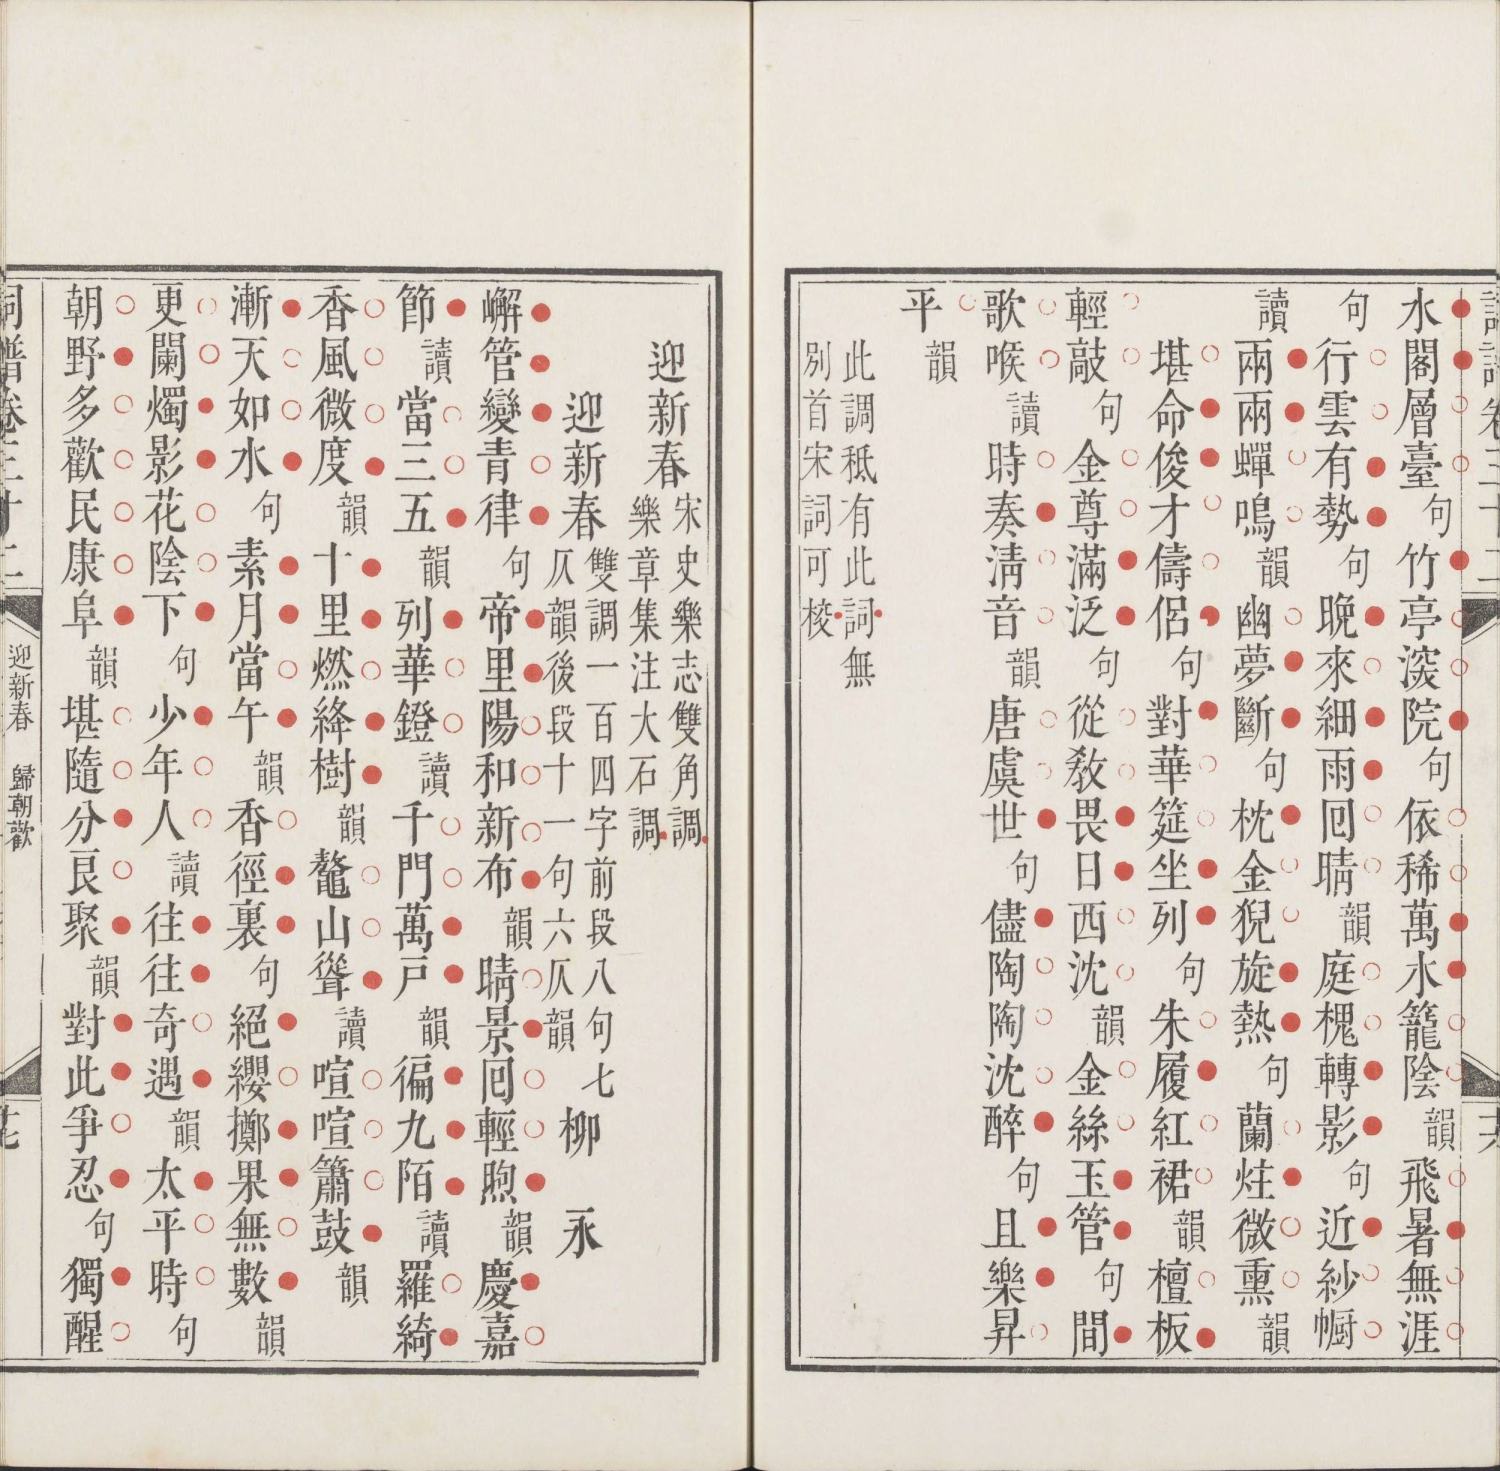 水閣層臺句竹亭深院句依稀萬水籠陰韻飛暑無涯
句行雲有勢句晚來細雨回晴韻庭槐轉影句近紗幮
讀兩兩蟬鳴韻幽夢斷句枕金猊旋熱句蘭炷微熏韻
堪命俊才儔侶句對華筵坐列句朱履紅裙韻檀板
輕敲句金尊滿泛句從教畏日西沈韻金絲玉管句間
歌喉讀時奏清音韻唐虞世句儘陶陶沈醉句且樂昇
平韻
此調秪有此詞無
別首宋詞可校
迎新春宋史樂志雙角調
樂章集注大石調
迎新春雙調一百四字前段八句七
仄韻後段十一句六仄韻
柳永
嶰管變青律句帝里陽和新布韻晴景回輕煦韻慶嘉
節讀當三五韻列華鐙讀千門萬戶韻徧九陌讀羅綺
香風微度韻十里燃絳樹韻鼇山聳讀喧喧簫鼓韻
漸天如水句素月當午韻香徑裏句絕纓擲果無數韻
更闌燭影花陰下句少年人讀往往奇遇韻太平時句
朝野多歡民康阜韻堪隨分良聚韻對此爭忍句獨醒
詞譜卷三十二
迎新春 歸朝歡